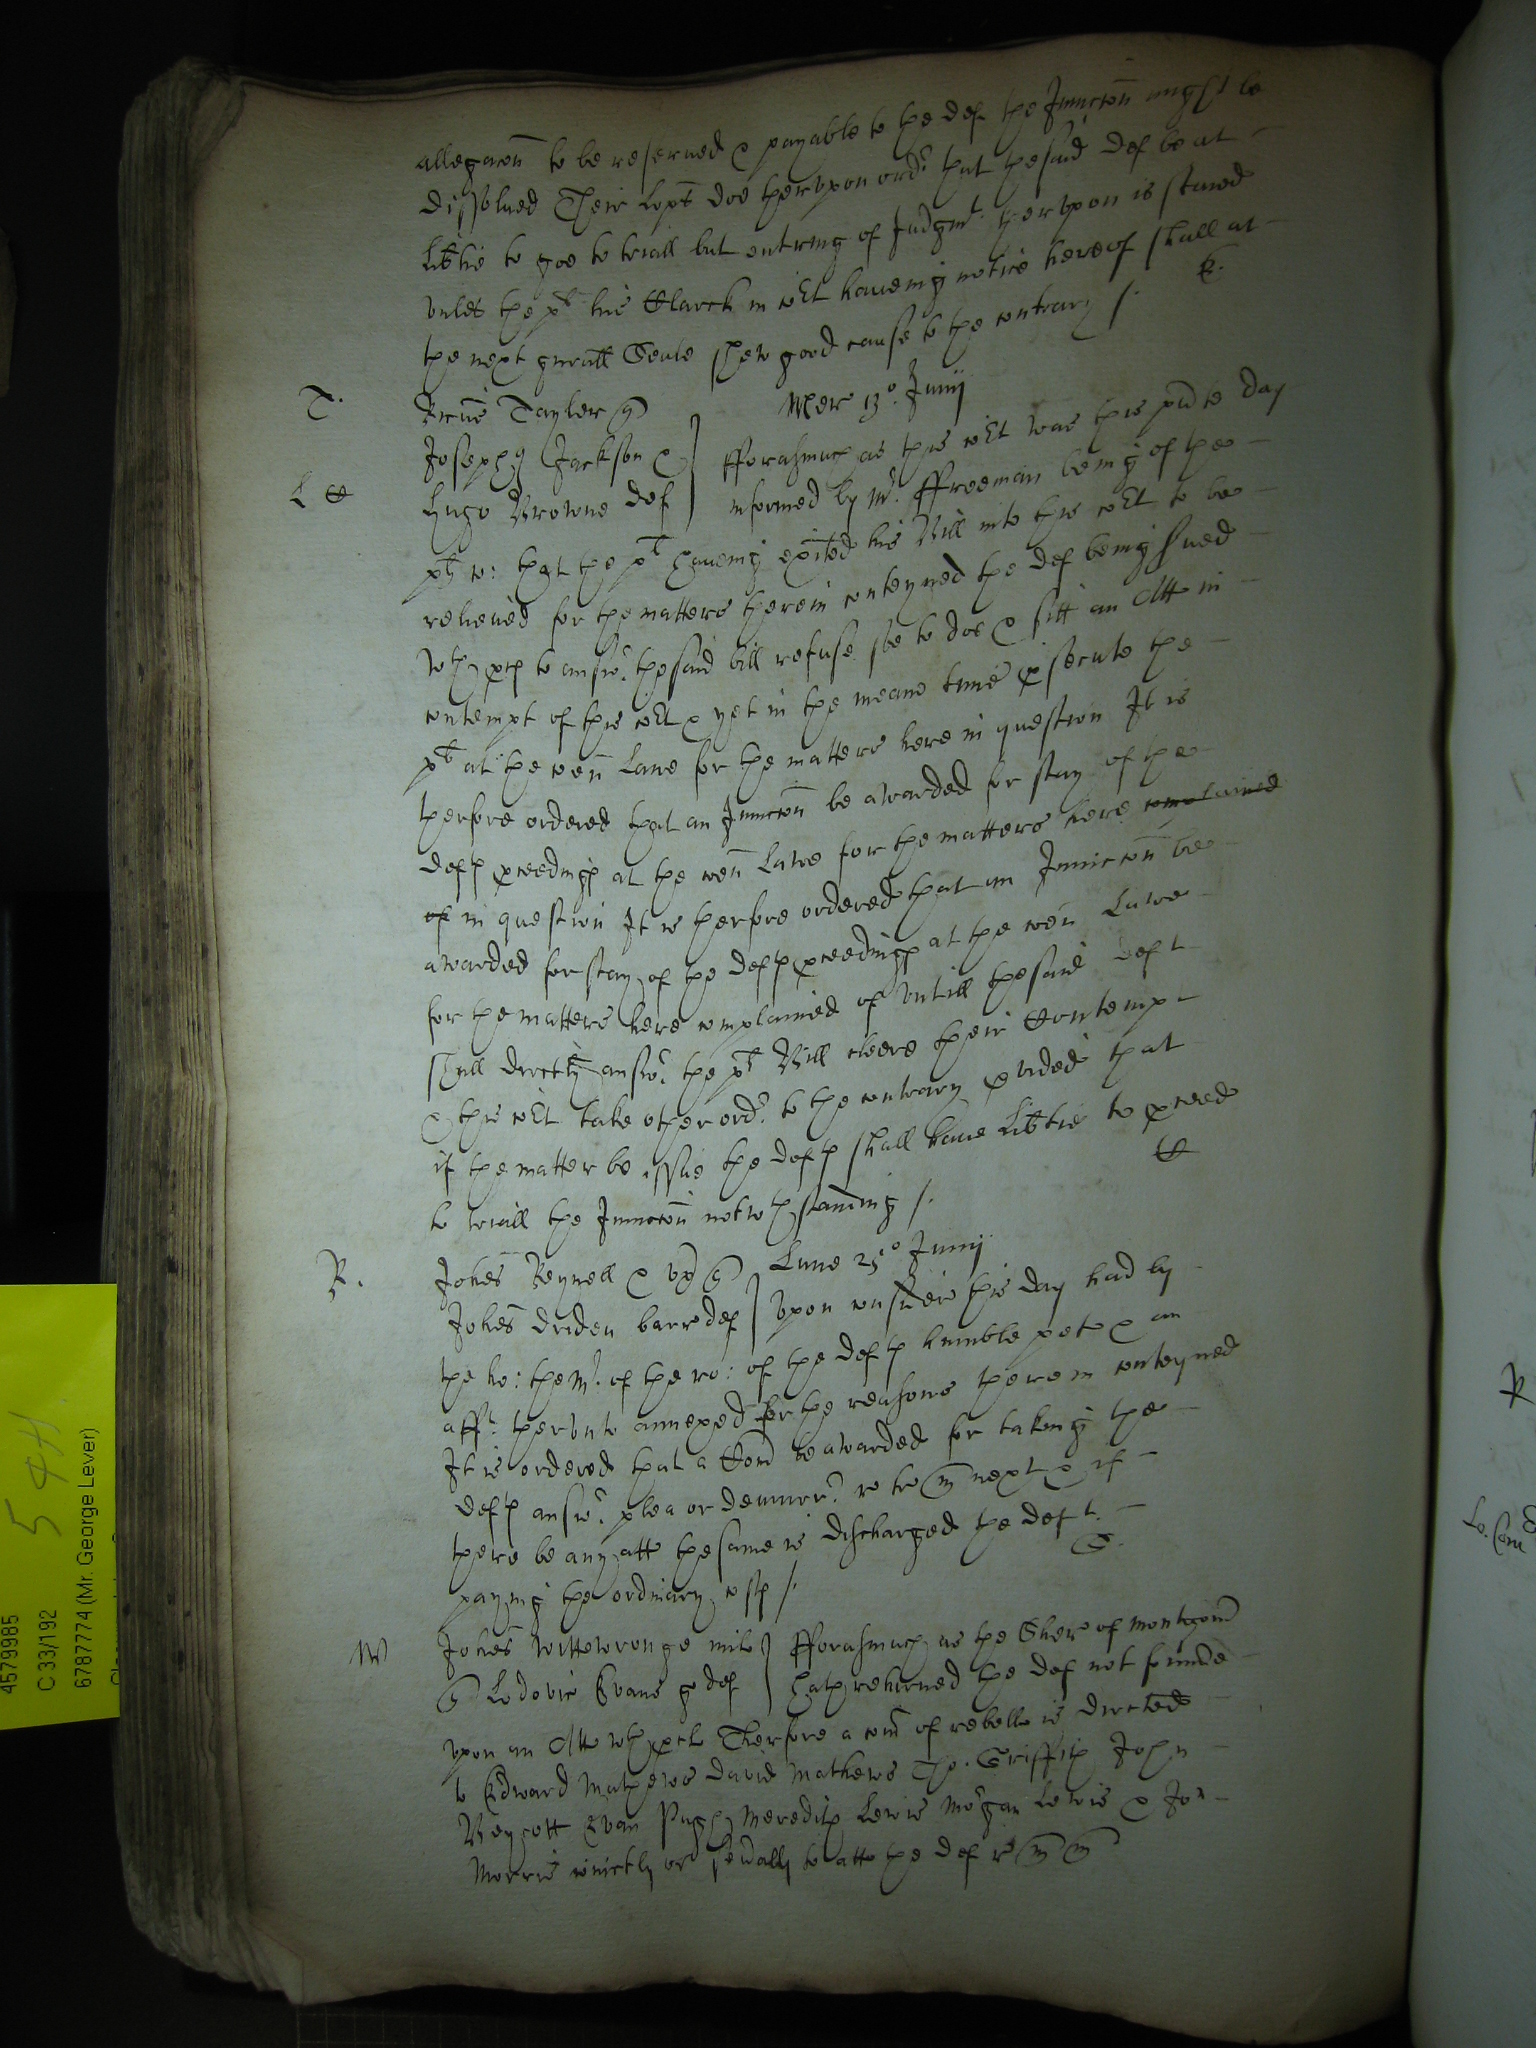 allegacon to be reserued & payable to the def the Iniunccon might be
dissolued Their Lopps doe therupon ord.r that the said def be at
lib'tie to goe to triall but entring of Iudgmt. therupon is staied
vnles the plt his Clarck in co'rt haueing notice hereof shall at
the next gen'all Seale shew good cause to the contrary /.
T. Taylor q Mer 13o. Junij
Joseph Jackson & } fforasmuch as this co'rt was this p'nte day
Hugo Browne def } informed by Mr. ffreeman being of the
plts co: that the plt haueing exhited his Bill into this co'rt to be
releiued for the matters therein conteyned the def being serued
wth p'cs to answ.r the said bill refuse soe to doe & sitt an Att in
contempt of this co'rt & yet in the meane time p'secute the
plt at the co'en Lawe for the matters here in question It is
therfore ordered that an Iniunccon be awarded for stay of the
defts p'ceedings at the co'en Lawe for the matters here complained
of in question It is therfore ordered that an Iniunccon be
awarded for stay of the defts p'ceedings at the co'en Lawe
for the matters here complained of vntill the said deft
shall directly answ.r the plts Bill cleere their Contempt
& this co'rt take other ord.r to the contrary p'vided that
if the matter be issue the defts shall haue lib'tie to p'ceed
to triall the Iniunccon notwthstanding /.
R. Johes Reynell & vx q Lune 25o Junij
Johes Driden barr def } Vpon consideracon this day had by
the ho: the Mr. of the ro: of the defts humble petr & an
afft. thervnto annexed for the reasons therein conteyned
It is ordered that a Com be awarded for taking the
defts answ.r plea or demurr.r re next & if
there be any att the same is discharged the deft
paying the ordinary costs /.
W Johes Wittewronge mil } fforasmuch as the Sher of Montgom
q Lodovic Evans g def } hath returned the def not founde
vpon an Att wth p'cl Therfore a com of rebell is directed
to Edward Mathews David Mathews Tho. Griffith John
Evan Pugh Meredith Lewis Morgan Lewis & Jon
Morris coniictly or seu'ally to att the def
54H.
4579985
C 33/192
6787774 (Mr. George Lever)
R
Lo. Com